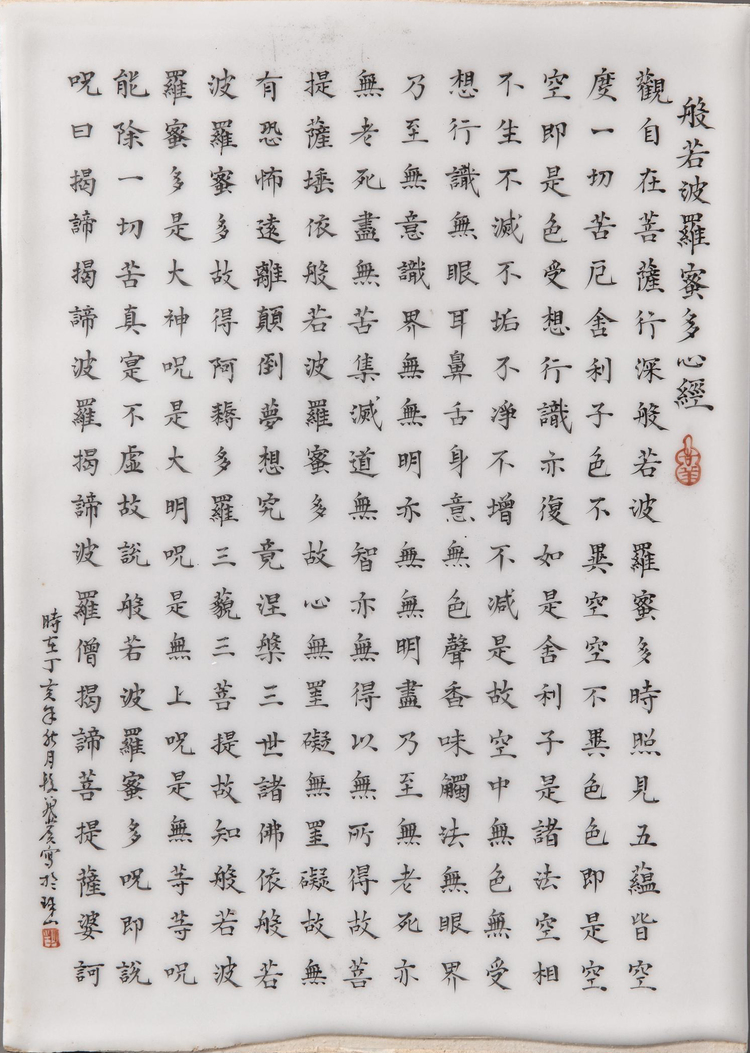 般若波羅蜜多心經
觀自在菩薩行深般若波羅蜜多時照見五蘊皆空
度一切苦厄舍利子色不異空空不異色色即是空
空即是色受想行識亦復如是舍利子是諸法空相
不生不滅不垢不凈不增不減是故空中無色無受
想行識無眼耳鼻舌身意無色聲香味觸法無眼界
乃至無意識界無無明亦無無明盡乃至無老死亦
無老死盡無苦集滅道無智亦無得以無所得故菩
提薩埵依般若波羅蜜多故心無罣礙無罣礙故無
有恐怖遠離顛倒夢想究竟涅槃三世諸佛依般若
波羅蜜多故得阿耨多羅三藐三菩提故知般若波
羅蜜多是大神呪是大明呪是無上呪是無等等呪
能除一切苦真寔不虛故說般若波羅蜜多呪即說
呪曰揭諦揭諦波羅揭諦波羅僧揭諦菩提薩婆訶
時在丁亥年秋月寫於珠山